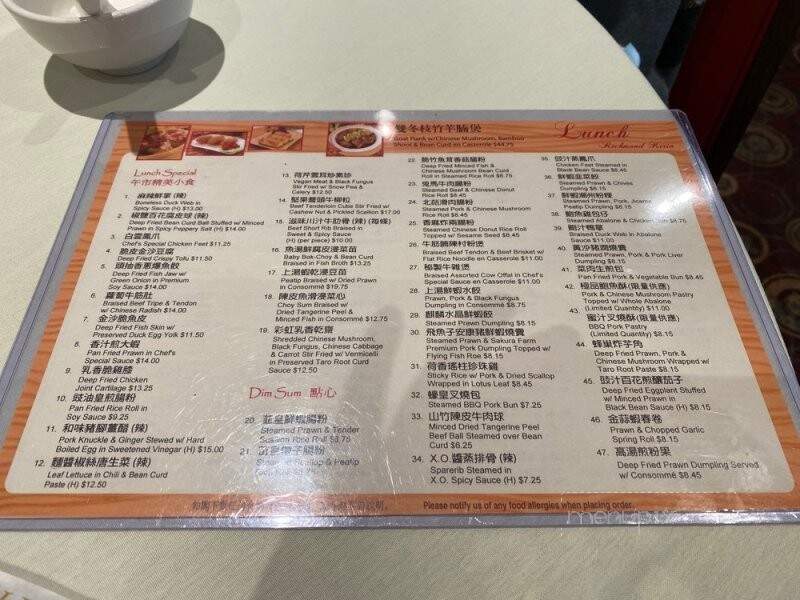 雙冬枝竹羊腩煲
Goat Flank w/Chinese Mushroom, Bamboo
Shoot & Bean Curd en Casserole $44.75
Lunch
Richmond Hill
Lunch Special
午市精美小食
1. 麻辣鮮掌 (辣)
Boneless Duck Web in
Spicy Sauce (H) $13.00
2. 椒鹽百花腐皮球 (辣)
Deep Fried Bean Curd Ball Stuffed w/ Minced
Prawn in Spicy Peppery Salt (H) $14.00
3. 白雲鳳爪
Chef's Special Chicken Feet $11.25
4. 脆皮金沙豆腐
Deep Fried Crispy Tofu $11.50
5. 頭抽香蔥爆魚餃
Deep Fried Fish Jaw w/
Green Onion in Premium
Soy Sauce $14.00
6. 蘿蔔牛筋肚
Braised Beef Tripe & Tendon
w/ Chinese Radish $14.00
7. 金沙脆魚皮
Deep Fried Fish Skin w/
Preserved Duck Egg Yolk $11.50
8. 香汁煎大蝦
Pan Fried Prawn in Chef's
Special Sauce $14.00
9. 乳香脆雞膝
Deep Fried Chicken
Joint Cartilage $13.25
10. 豉油皇煎腸粉
Pan Fried Rice Roll in
Soy Sauce $9.25
11. 和味豬腳薑醋 (H)
Pork Knuckle & Ginger Stewed w/ Hard
Boiled Egg in Sweetened Vinegar (H) $15.00
12. 麵醬椒絲唐生菜 (辣)
Leaf Lettuce in Chili & Bean Curd
Paste (H) $12.50
13. 荷芹雲耳炒素珍
Vegan Meat & Black Fungus
Stir Fried w/ Snow Pea &
Celery $12.50
14. 堅果蕎頭牛柳粒
Beef Tenderloin Cube Stir Fried w/
Cashew Nut & Pickled Scallion $17.00
15. 滋味川汁牛肋骨 (辣) (每條)
Beef Short Rib Braised in
Sweet & Spicy Sauce
(H) (per piece) $10.00
16. 魚湯鮮腐皮浸菜苗
Baby Bok-Choy & Bean Curd
Braised in Fish Broth $13.25
17. 上湯蝦乾浸豆苗
Peatip Braised w/ Dried Prawn
in Consommé $19.75
18. 陳皮魚滑浸菜心
Choy Sum Braised w/
Dried Tangerine Peel &
Minced Fish in Consommé $12.75
19. 彩虹乳香乾齋
Shredded Chinese Mushroom,
Black Fungus, Chinese Cabbage
& Carrot Stir Fried w/ Vermicelli
in Preserved Taro Root Curd
Sauce $12.50
Dim Sum 點心
20. 韮皇鮮蝦腸粉
Steamed Prawn & Tender
21.
22. 脆竹魚茸香菇腸粉
Deep Fried Minced Fish &
Chinese Mushroom Bean Curd
Roll in Steamed Rice Roll $8.75
23. 兔馬牛肉腸粉
Steamed Beef & Chinese Donut
Rice Roll $8.45
24. 北菇滑肉腸粉
Steamed Pork & Chinese Mushroom
Rice Roll $8.45
25. 香麻炸兩腸粉
Steamed Chinese Donut Rice Roll
Topped w/ Sesame Seed $8.45
26. 牛筋腩陳村粉煲
Braised Beef Tendon & Beef Brisket w/
Flat Rice Noodle en Casserole $11.00
27. 秘製牛雜煲
Braised Assorted Cow Offal in Chef's
Special Sauce en Casserole $11.00
28. 上湯鮮蝦水餃
Prawn, Pork & Black Fungus
Dumpling in Consommé $8.75
29. 麒麟水晶鮮蝦餃
Steamed Prawn Dumpling $8.75
30. 飛魚子安康豬鮮蝦燒賣
Steamed Prawn & Sakura Farm
Premium Pork Dumpling Topped w/
Flying Fish Roe $8.15
31. 荷香瑤柱珍珠雞
Sticky Rice w/ Pork & Dried Scallop
Wrapped in Lotus Leaf $8.45
32. 蠔皇叉燒包
Steamed BBQ Pork Bun $7.25
33. 山竹陳皮牛肉球
Minced Dried Tangerine Peel
Beef Ball Steamed over Bean
Curd $6.25
34. X.O.醬蒸排骨 (辣)
Sparerib Steamed in
X.O. Spicy Sauce (H) $7.25
35. 豉汁蒸鳳爪
Chicken Feet Steamed in
Black Bean Sauce
36. 鮮蝦韮菜餃
Steamed Prawn & Chives
Dumpling $8.15
37. 鮮蝦潮州粉粿
Steamed Prawn, Pork, Jicama
38. 鮑魚雞包仔
Steamed Abalone & Chicken Bun
39. 鮑汁鴨掌
Braised Duck Web in Abalone
Sauce $11.00
40. 黃沙豬潤燒賣
Steamed Prawn, Pork & Pork Liver
Dumpling $8.15
41. 菜肉生煎包
Pan Fried Pork & Vegetable Bun $8.45
42. 極品鮑魚酥 (限量供應)
Pork & Chinese Mushroom Pastry
Topped w/ Whole Abalone
(Limited Quantity) $11.00
43. 蜜汁叉燒酥 (限量供應)
BBQ Pork Pastry
(Limited Quantity) $8.15
44. 蜂巢炸芋角
Deep Fried Prawn, Pork &
Chinese Mushroom Wrapped w/
Taro Root Paste $8.15
45. 豉汁百花煎釀茄子
Deep Fried Eggplant Stuffed
w/ Minced Prawn in
Black Bean Sauce (H) $8.15
46. 金蒜蝦春卷
Prawn & Chopped Garlic
Spring Roll $8.15
47. 高湯煎粉果
Deep Fried Prawn Dumpling Served
w/ Consommé $8.45
Please notify us of any food allergies when placing order.